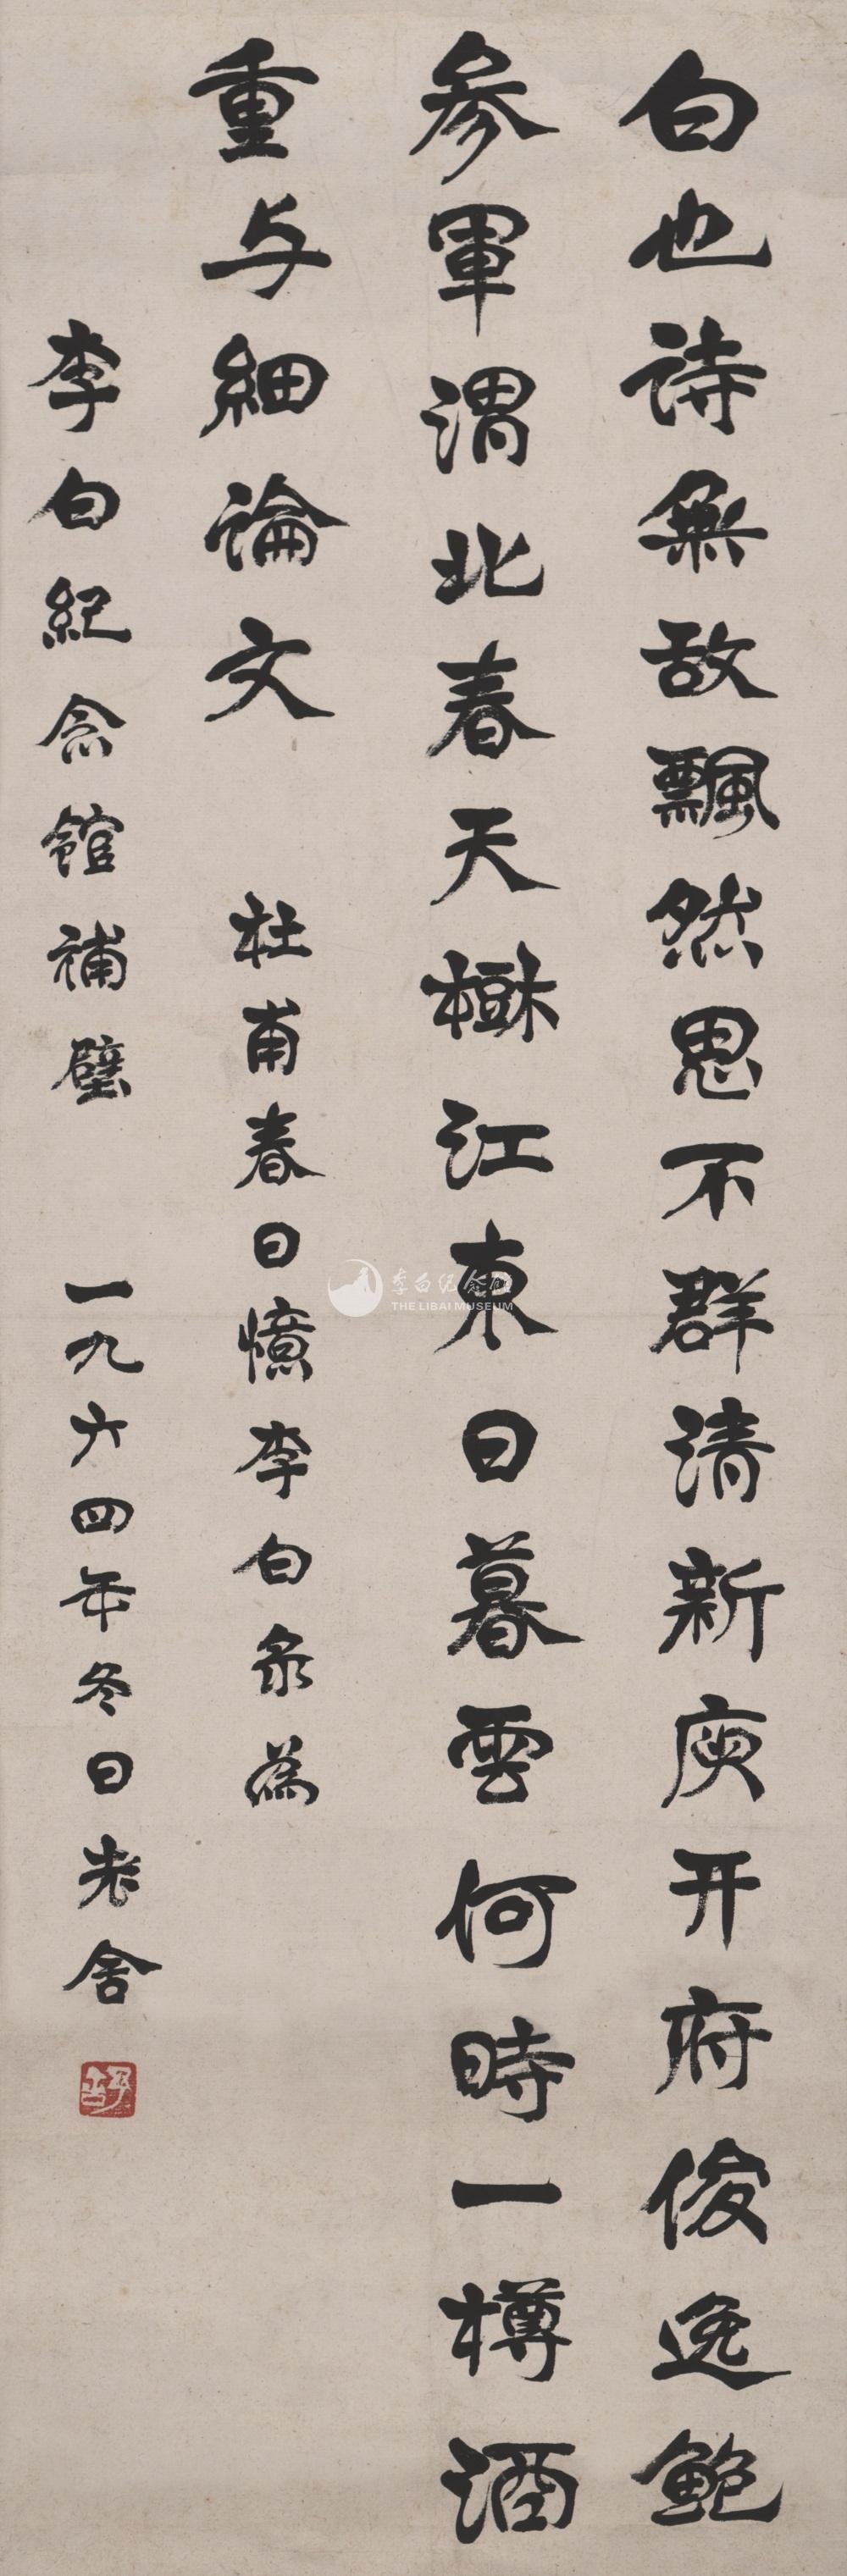 白也詩無敌飄然思不群清新庾开府俊逸鲍
参軍渭北春天樹江東日暮雲何時一樽酒
重与細論文
杜甫春日憶李白录為
李白紀念館補壁
一九六四年冬日老舍
舒
李白纪念馆
THE LIBAI MUSEUM